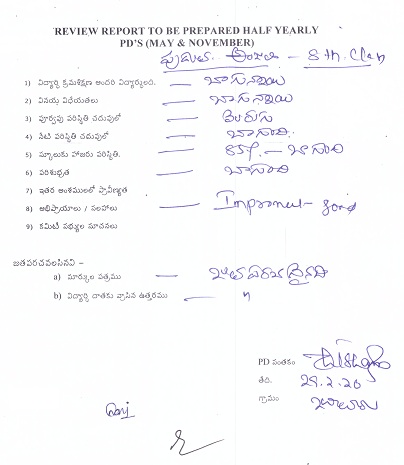 REVIEW REPORT TO BE PREPARED HALF YEARLY
PD'S (MAY & NOVEMBER)
- 8th. Class
1) విద్యార్థి క్రమశిక్షణ అందరి విద్యార్థులంది. — బాగున్నాయి
2) వినయ విధేయతలు — బాగున్నాయి
3) పూర్వపు పరిస్థితి చదువులో —
4) నేటి పరిస్థితి చదువులో — బాగుంది.
5) స్కూలుకు హాజరు పరిస్థితి. — 85%. - బాగుంది
6) పరిశుభ్రత — బాగుంది
7) ఇతర అంశములలో ప్రావీణ్యత
8) అభిప్రాయాలు / సలహాలు —
9) కమిటీ సభ్యుల సూచనలు
జతపరచవలసినవి –
a) మార్కుల పత్రము — జత పరచ డైనది
b) విద్యార్థి దాతకు వ్రాసిన ఉత్తరము — "
PD సంతకం
తేది. 29.2.20
గ్రామం